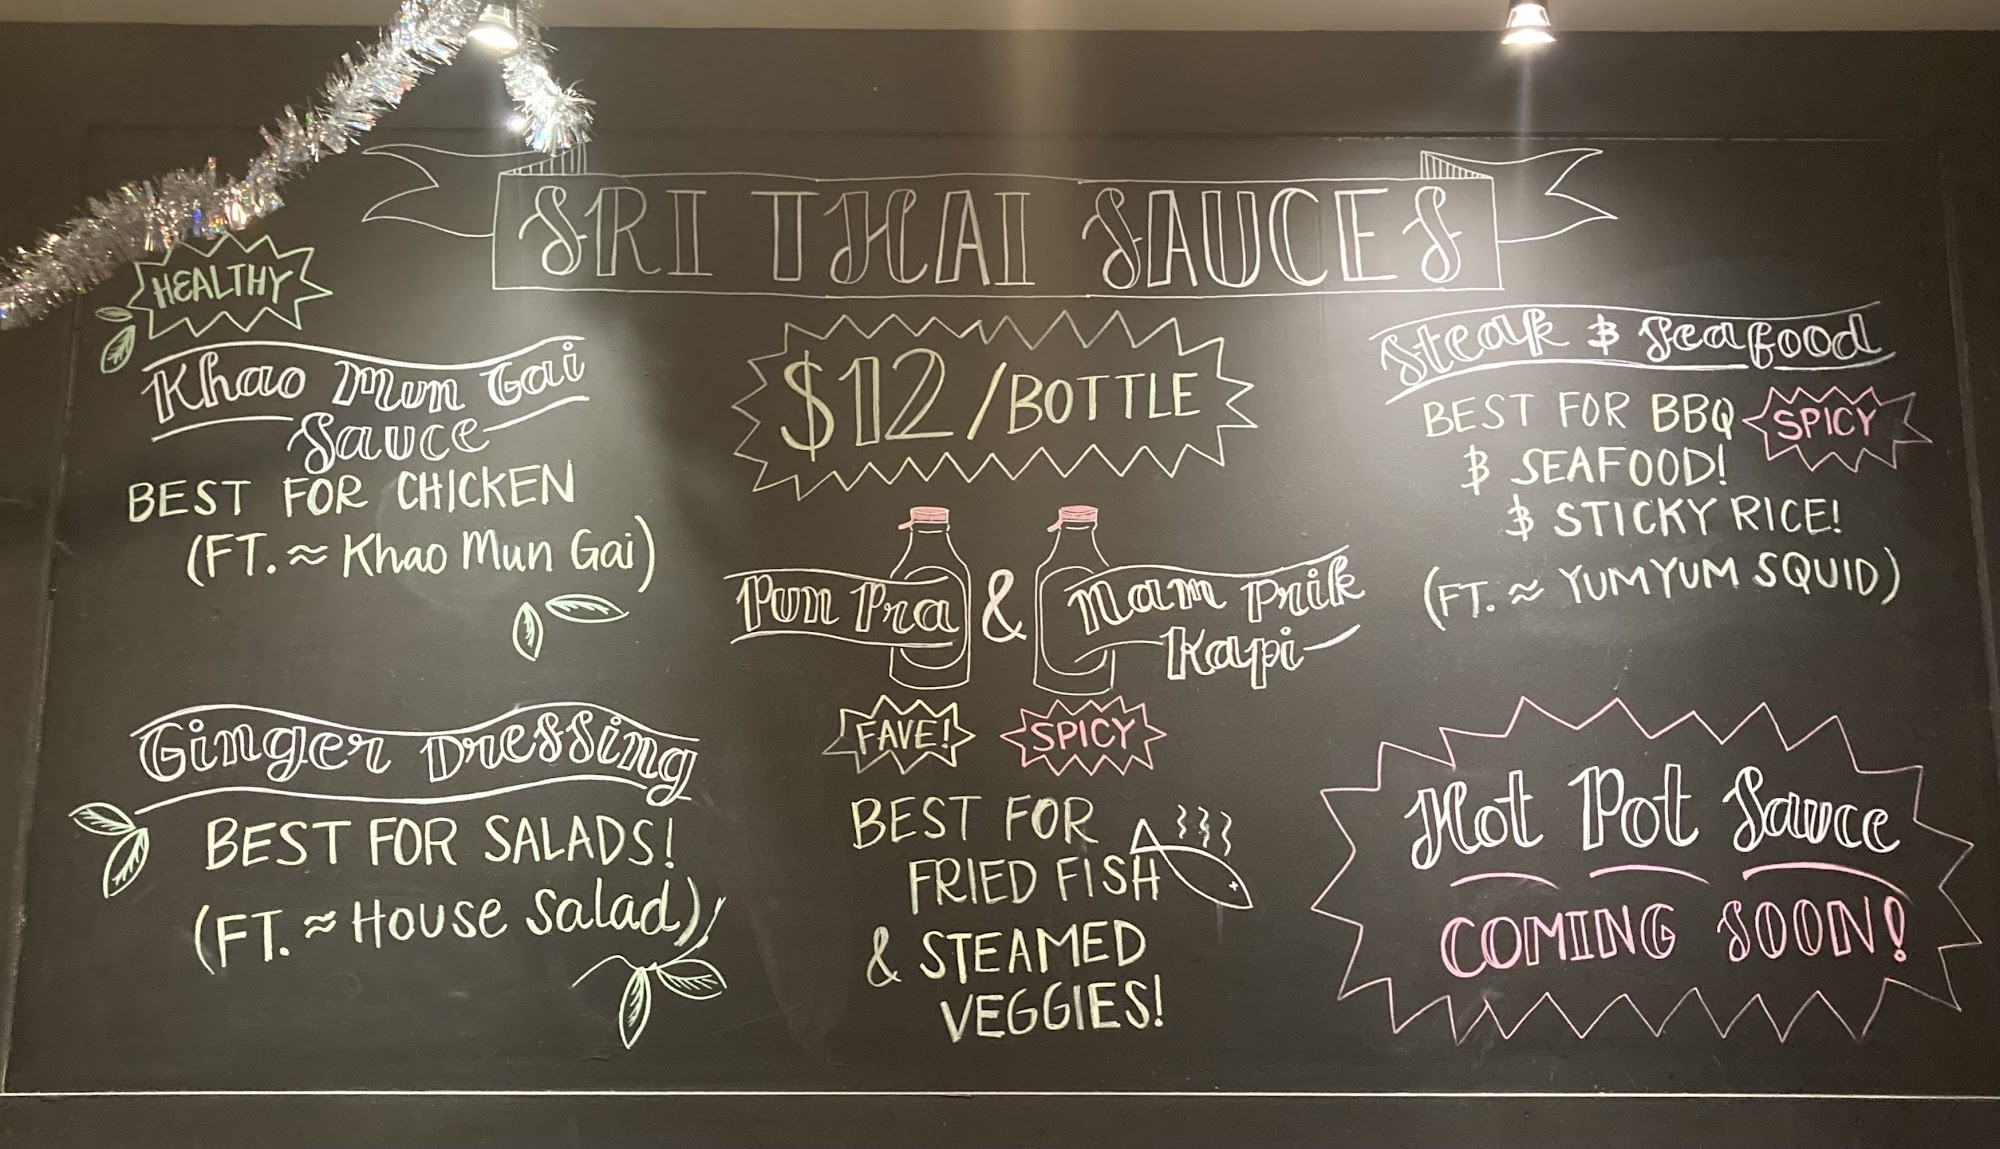 SRI THAI SAUCES
HEALTHY
Khao Mun Gai
Sauce
BEST FOR CHICKEN
(FT. ≈ Khao Mun Gai)
Ginger Dressing
BEST FOR SALADS!
(FT. ≈ House Salad)
$12/BOTTLE
Pun Pra & Nam Prik
Kapi
FAVE! SPICY
BEST FOR
FRIED FISH
& STEAMED
VEGGIES!
Steak & Seafood
BEST FOR BBQ SPICY
& SEAFOOD!
& STICKY RICE!
(FT. ≈ YUMYUM SQUID)
Hot Pot Sauce
COMING SOON!